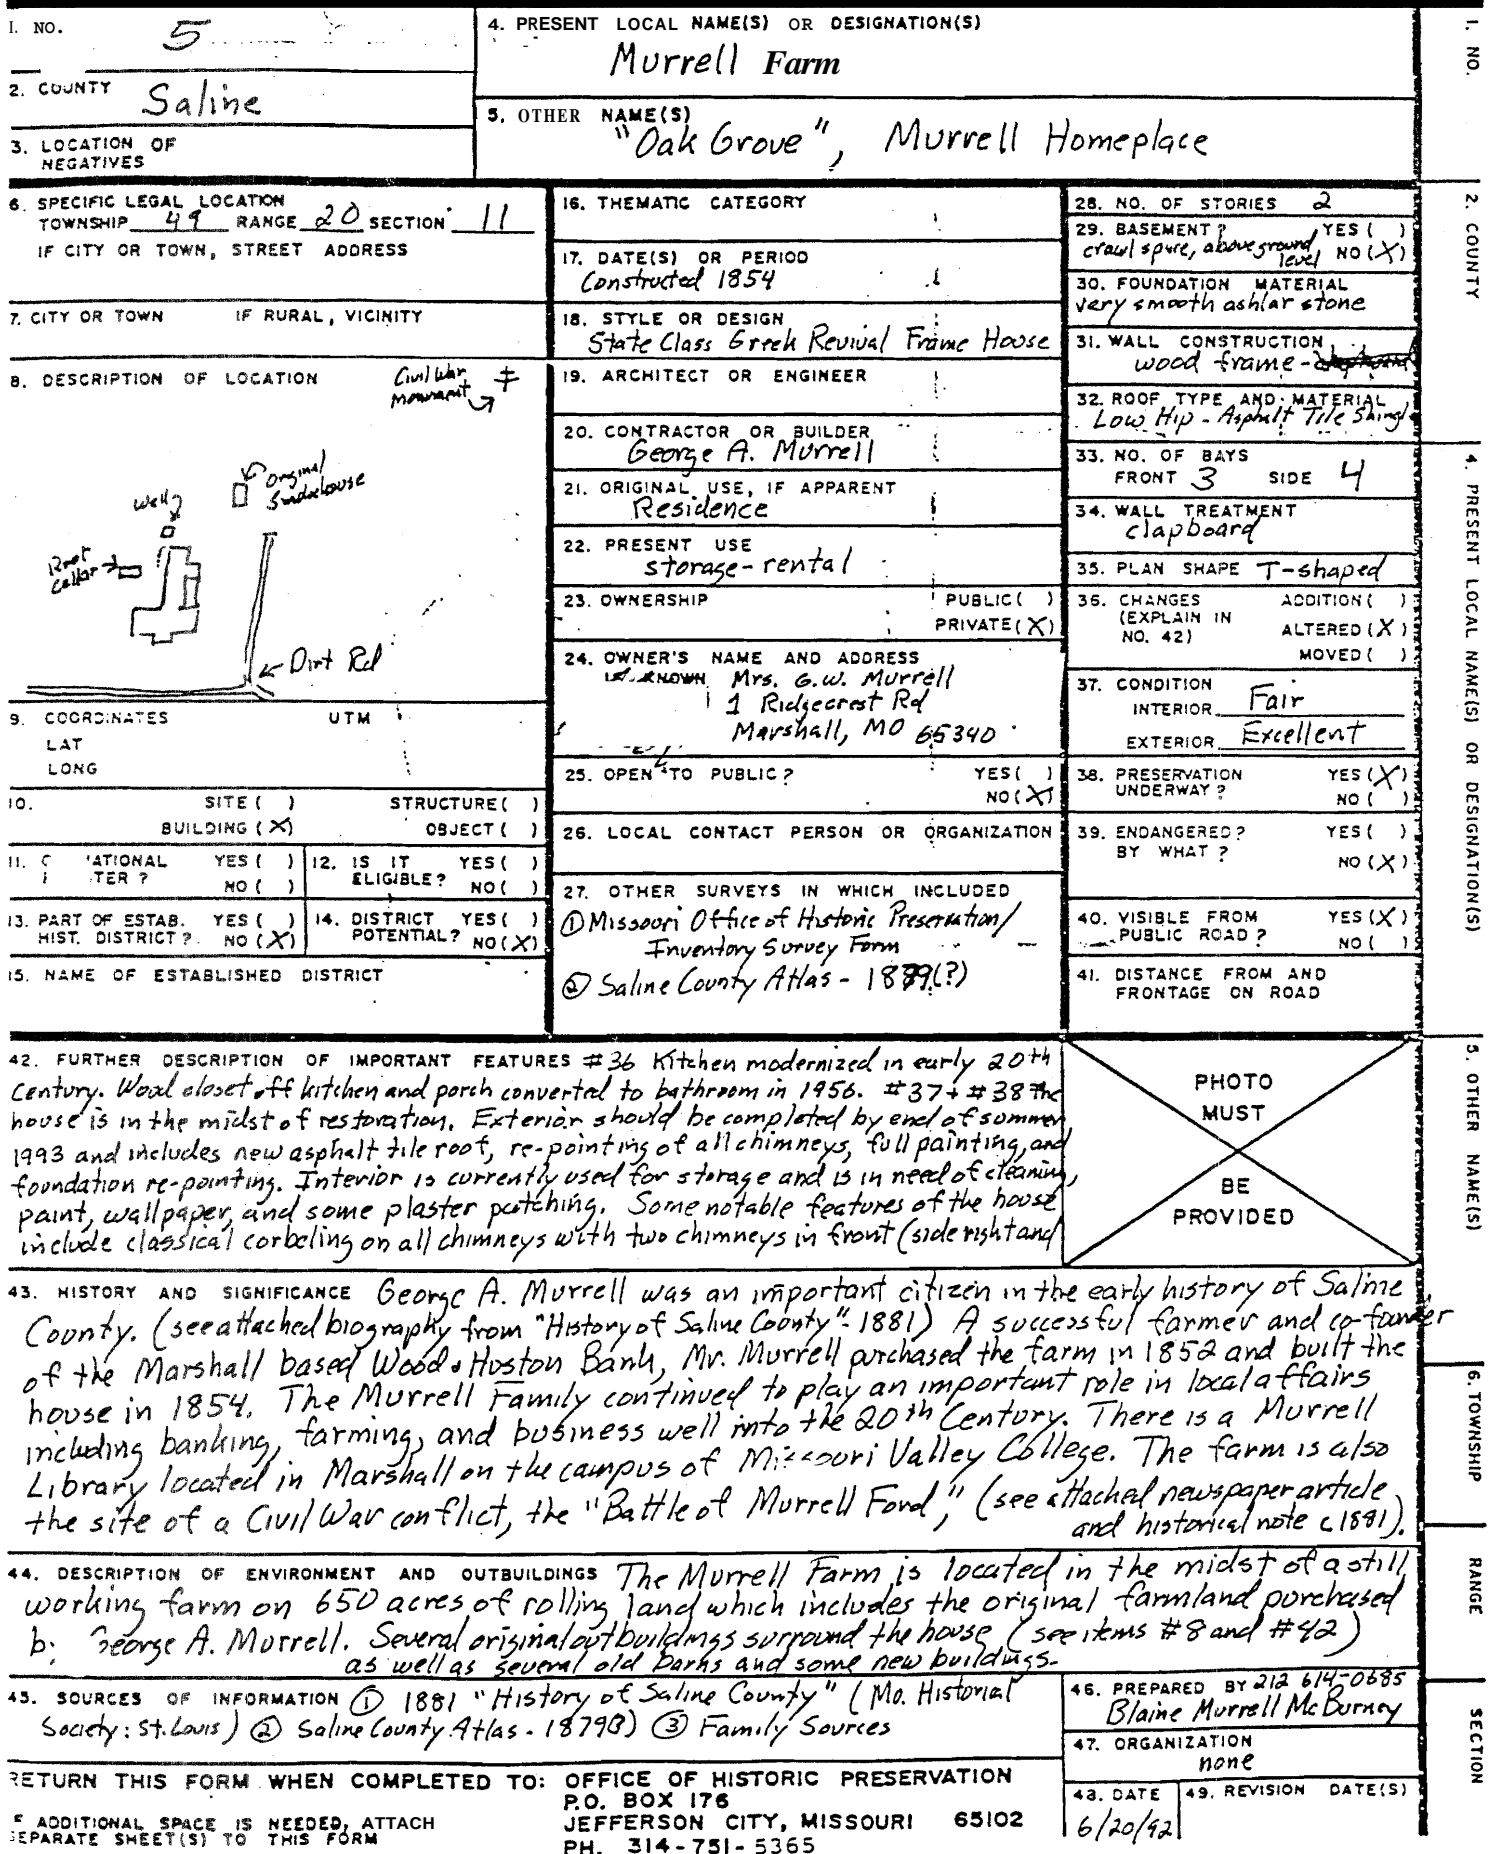 I. NO. 5
2. COUNTY Saline
3. LOCATION OF
NEGATIVES
4. PRESENT LOCAL NAME(S) OR DESIGNATION(S)
Murrell Farm
5. OTHER NAME(S)
"Oak Grove", Murrell Homeplace
6. SPECIFIC LEGAL LOCATION
TOWNSHIP 49 RANGE 20 SECTION 11
IF CITY OR TOWN, STREET ADDRESS
7. CITY OR TOWN IF RURAL, VICINITY
8. DESCRIPTION OF LOCATION
Civil War
Monument
Original
Smokehouse
Well
Root
Cellar
Dirt Rd
9. COORDINATES UTM
LAT
LONG
10. SITE ( ) STRUCTURE ( )
BUILDING (X) OBJECT ( )
11. YES ( )
NO ( )
12. IS IT YES ( )
ELIGIBLE? NO ( )
13. PART OF ESTAB. YES ( )
HIST. DISTRICT? NO (X)
14. DISTRICT YES ( )
POTENTIAL? NO (X)
15. NAME OF ESTABLISHED DISTRICT
16. THEMATIC CATEGORY
17. DATE(S) OR PERIOD
Constructed 1854
18. STYLE OR DESIGN
State Class Greek Revival Frame House
19. ARCHITECT OR ENGINEER
20. CONTRACTOR OR BUILDER
George A. Murrell
21. ORIGINAL USE, IF APPARENT
Residence
22. PRESENT USE
storage-rental
23. OWNERSHIP PUBLIC ( )
PRIVATE (X)
24. OWNER'S NAME AND ADDRESS
IF KNOWN Mrs. G.W. Murrell
1 Ridgecrest Rd
Marshall, MO 65340
25. OPEN TO PUBLIC? YES ( )
NO (X)
26. LOCAL CONTACT PERSON OR ORGANIZATION
27. OTHER SURVEYS IN WHICH INCLUDED
① Missouri Office of Historic Preservation/
Inventory Survey Form
② Saline County Atlas - 1879(?)
28. NO. OF STORIES 2
29. BASEMENT? YES ( )
crawl space, above ground level NO (X)
30. FOUNDATION MATERIAL
very smooth ashlar stone
31. WALL CONSTRUCTION
wood frame-
32. ROOF TYPE AND MATERIAL
Low Hip - Asphalt Tile Shingle
33. NO. OF BAYS
FRONT 3 SIDE 4
34. WALL TREATMENT
clapboard
35. PLAN SHAPE T-shaped
36. CHANGES ADDITION ( )
(EXPLAIN IN ALTERED (X)
NO. 42) MOVED ( )
37. CONDITION
INTERIOR Fair
EXTERIOR Excellent
38. PRESERVATION YES (X)
UNDERWAY? NO ( )
39. ENDANGERED? YES ( )
BY WHAT? NO (X)
40. VISIBLE FROM YES (X)
PUBLIC ROAD? NO ( )
41. DISTANCE FROM AND
FRONTAGE ON ROAD
42. FURTHER DESCRIPTION OF IMPORTANT FEATURES #36 Kitchen modernized in early 20th
Century. Wood closet off kitchen and porch converted to bathroom in 1956. #37 + #38 the
house is in the midst of restoration. Exterior should be completed by end of summer
1993 and includes new asphalt tile roof, re-pointing of all chimneys, full painting, and
foundation re-pointing. Interior is currently used for storage and is in need of cleaning,
paint, wallpaper, and some plaster patching. Some notable features of the house
include classical corbeling on all chimneys with two chimneys in front (side right and
PHOTO
MUST
BE
PROVIDED
43. HISTORY AND SIGNIFICANCE George A. Murrell was an important citizen in the early history of Saline
County. (see attached biography from "History of Saline County"-1881) A successful farmer and co-founder
of the Marshall based Wood & Huston Bank, Mr. Murrell purchased the farm in 1852 and built the
house in 1854. The Murrell Family continued to play an important role in local affairs
including banking, farming, and business well into the 20th Century. There is a Murrell
Library located in Marshall on the campus of Missouri Valley College. The farm is also
the site of a Civil War conflict, the "Battle of Murrell Ford," (see attached newspaper article
and historical note c1881).
44. DESCRIPTION OF ENVIRONMENT AND OUTBUILDINGS The Murrell Farm is located in the midst of a still
working farm on 650 acres of rolling land which includes the original farmland purchased
by George A. Murrell. Several original outbuildings surround the house (see items #8 and #42)
as well as several old barns and some new buildings.
45. SOURCES OF INFORMATION ① 1881 "History of Saline County" (Mo. Historial
Society: St. Louis) ② Saline County Atlas - 1879(?) ③ Family Sources
46. PREPARED BY 212 614-0685
Blaine Murrell McBurney
47. ORGANIZATION
none
48. DATE
6/20/92
49. REVISION DATE(S)
RETURN THIS FORM WHEN COMPLETED TO: OFFICE OF HISTORIC PRESERVATION
P.O. BOX 176
JEFFERSON CITY, MISSOURI 65102
PH. 314-751-5365
IF ADDITIONAL SPACE IS NEEDED, ATTACH
SEPARATE SHEET(S) TO THIS FORM
1. NO.
2. COUNTY
4. PRESENT LOCAL NAME(S) OR DESIGNATION(S)
5. OTHER NAME(S)
6. TOWNSHIP
RANGE
SECTION